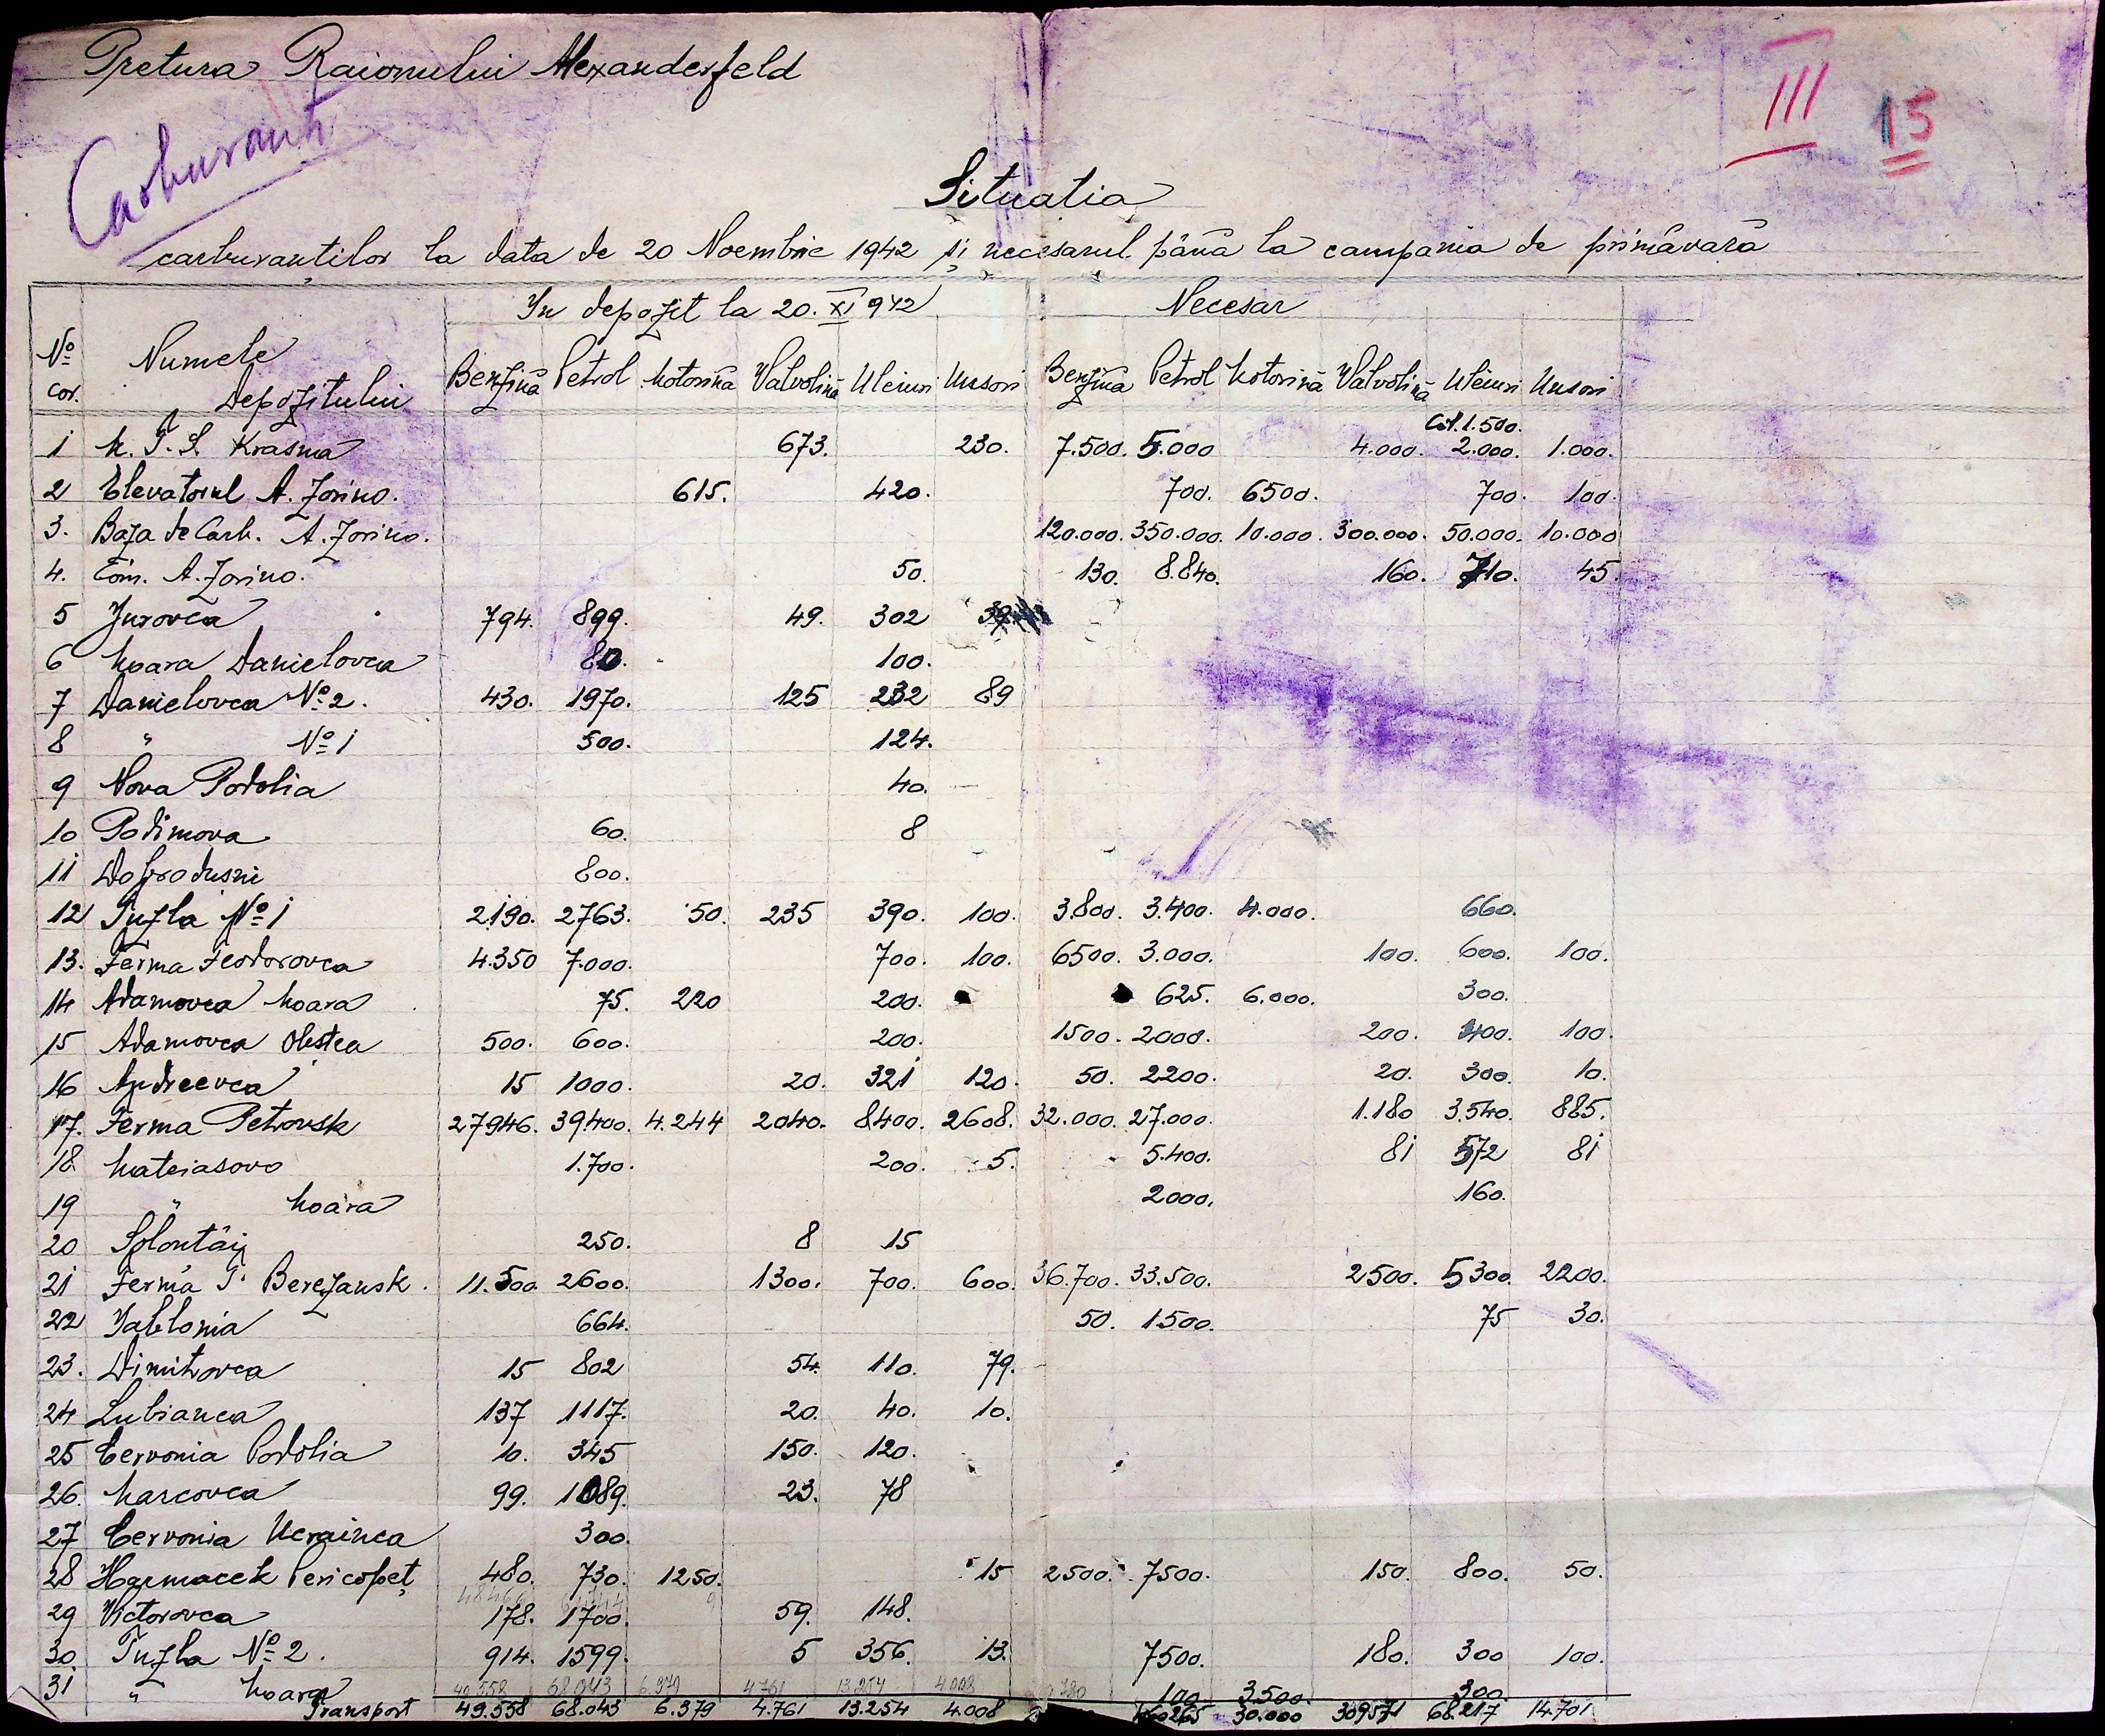 Pretura Raionului Alexanderfeld
III 15
Carburanti
Situatia
carburanților la data de 20 Noembrie 1942 și necesarul până la campania de primăvară
In depozit la 20.XI 942 Necesar
No cor. Numele Depozitului Benzină Petrol Motorină Valvolină Uleiuri Unsori Benzină Petrol Motorină Valvolină Uleiuri Unsori
Cil. 1.500.
1 M. T. S. Krasna 673. 230. 7.500. 5.000 4.000. 2.000. 1.000.
2 Elevatorul A. Zorino. 615. 420. 700. 6500. 700. 100.
3. Baza de Carb. A. Zorino. 120.000. 350.000. 10.000. 300.000. 50.000. 10.000
4. Com. A. Zorino. 50. 130. 8.840. 160. 710. 45.
5 Jurovca 794. 899. 49. 302
6 Moara Danielovca 80. 100.
7 Danielovca No 2. 430. 1970. 125 232 89
8 " No 1 500. 124.
9 Nova Podolia 40.
10 Podimova 60. 8
11 Dobrodusni 800.
12 Tuzla No 1 2190. 2763. 50. 235 390. 100. 3.800. 3.400. 4.000. 660.
13. Ferma Feodorovca 4.350 7.000. 700. 100. 6500. 3.000. 100. 600. 100.
14 Adamovca Moara 75. 220 200. 625. 6.000. 300.
15 Adamovca Obstea 500. 600. 200. 1500. 2000. 200. 400. 100.
16 Andreevca 15 1000. 20. 321 120. 50. 2200. 20. 300. 10.
17. Ferma Petrovsk 27946. 39.400. 4.244 2040. 8400. 2608. 32.000. 27.000. 1.180 3.540. 885.
18 Mateiasovo 1.700. 200. 5. 5.400. 81 572 81
19 " Moara 2000. 160.
20 Solontăi 250. 8 15
21 Ferma T. Berezansk. 11.500. 2600. 1300. 700. 600. 36.700. 33.500. 2500. 5300. 2200.
22 Iablonia 664. 50. 1500. 75 30.
23. Dimitovca 15 802 54. 110. 79.
24 Lubianca 137 1117. 20. 40. 10.
25 Cervonia Podolia 10. 345 150. 120.
26. Marcovca 99. 1089. 23. 78
27 Cervonia Ucrainca 300.
28 Harmacek Pericopeț 480. 730. 1250. 15 2500. 7500. 150. 800. 50.
29 Victorovca 178. 1700. 59. 148.
30 Tuzla No 2. 914. 1599. 5 356. 13. 7500. 180. 300 100.
31 " Moara 100 3.500. 300
49.558 68.043 6.379 4.761 13.254 4.008
Transport 49.558 68.043 6.379 4.761 13.254 4.008 30.000 309571 68.217 14.701